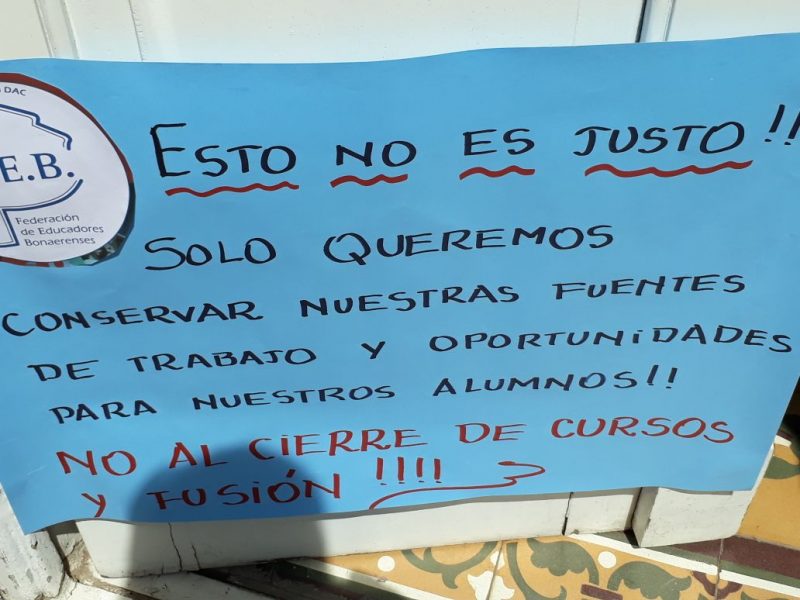 DAC
E.B.
Federación
de Educadores
Bonaerenses
ESTO NO ES JUSTO!!
SOLO QUEREMOS
CONSERVAR NUESTRAS FUENTES
DE TRABAJO Y OPORTUNIDADES
PARA NUESTROS ALUMNOS!!
NO AL CIERRE DE CURSOS
Y FUSIÓN !!!!